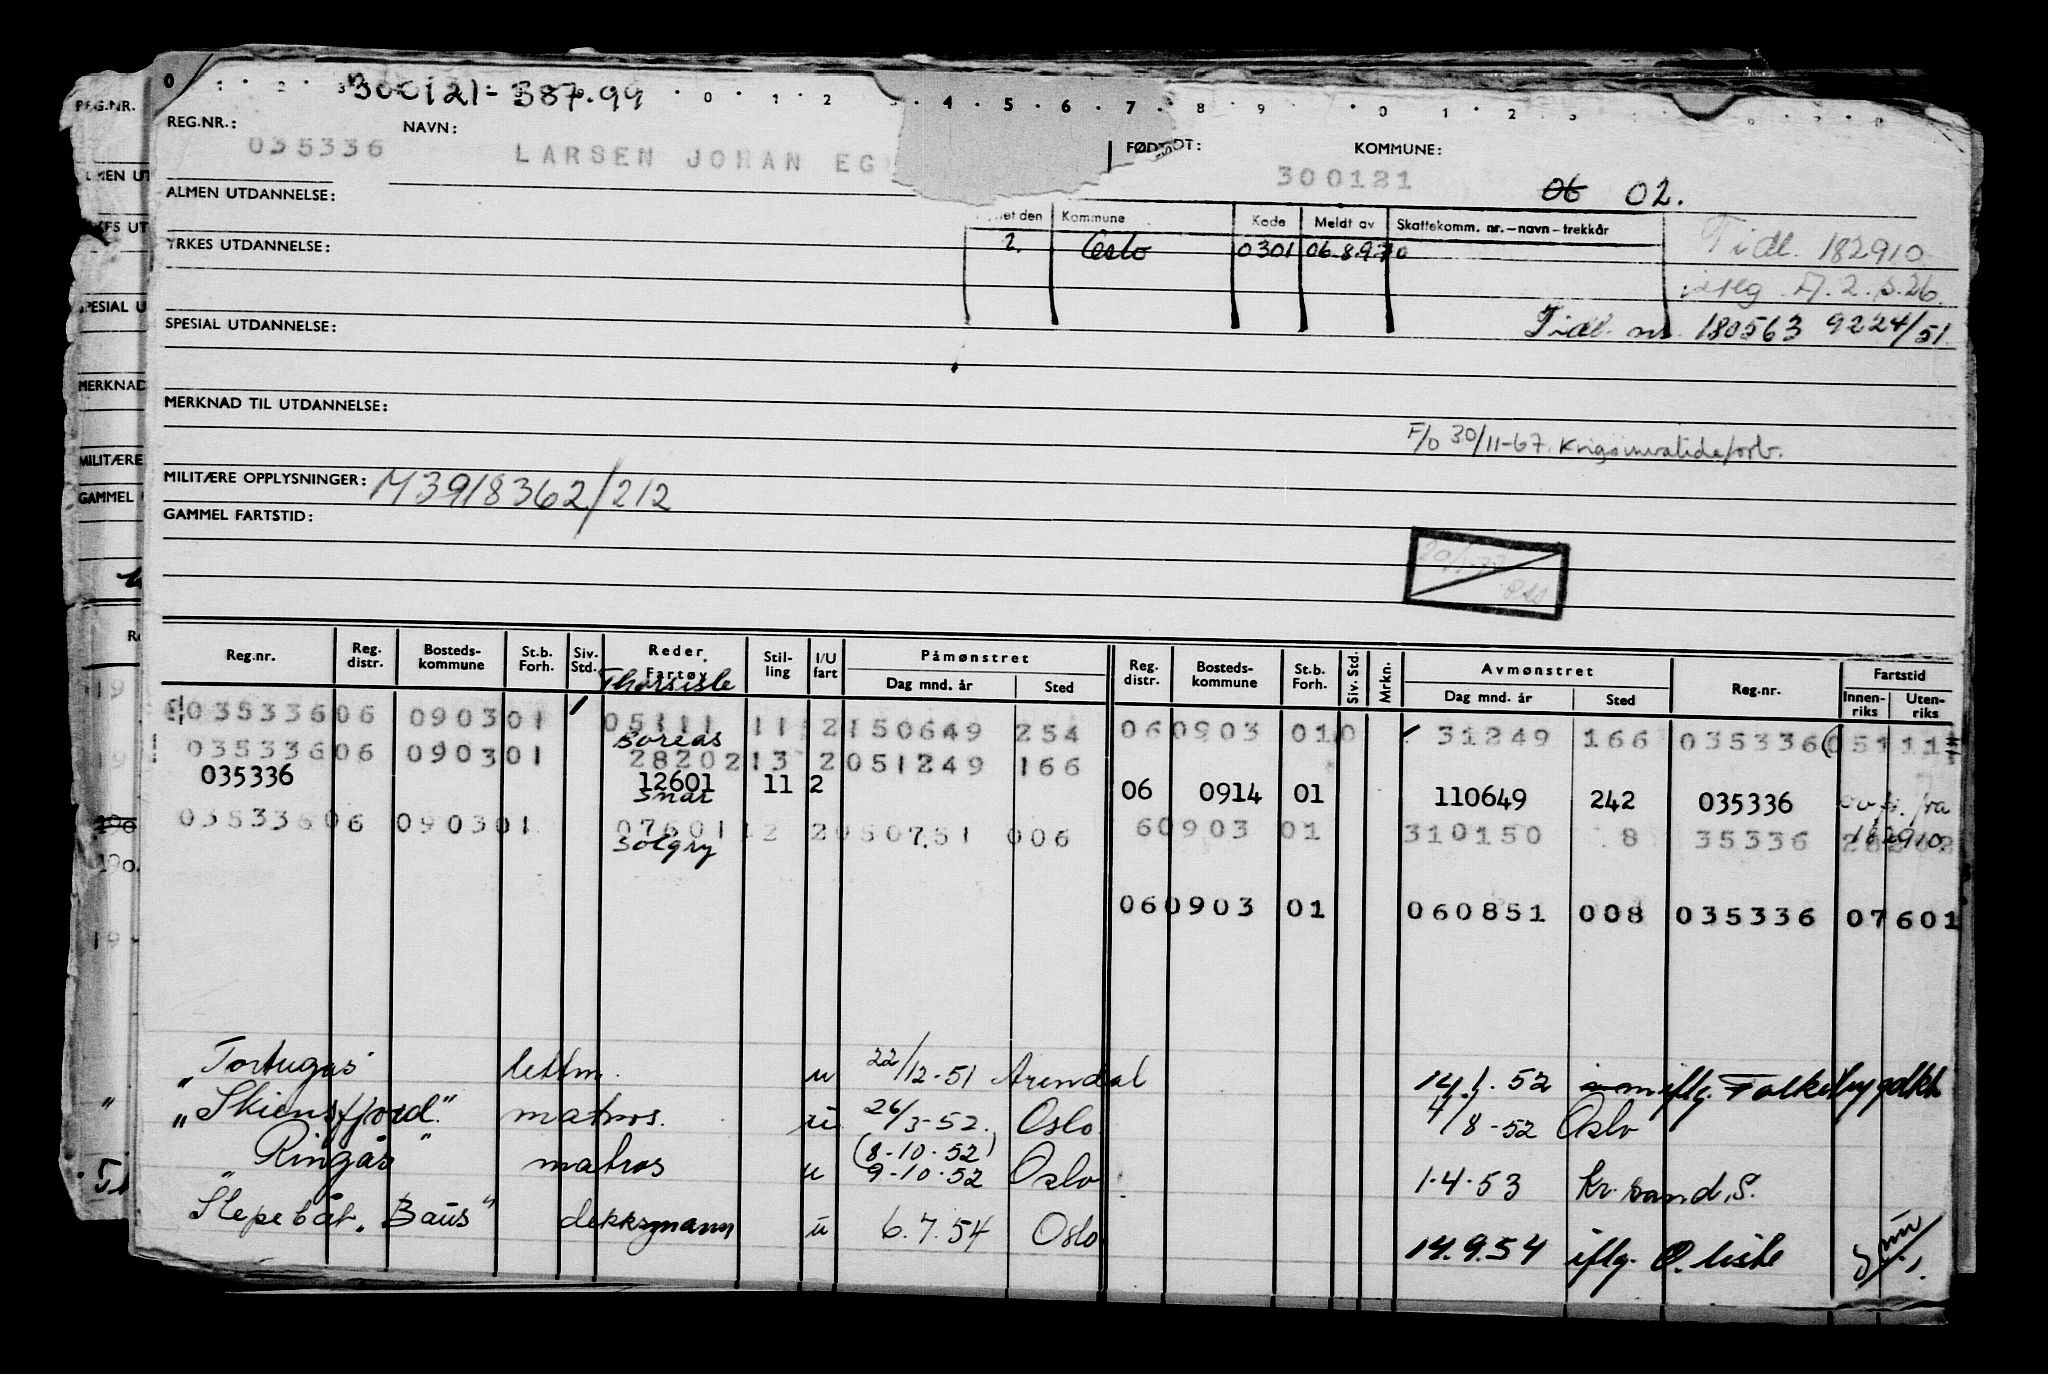 0 1 2 3 300121-387.99 0 1 2 4 5 6 7 8 9 0 1 2
REG.NR.: NAVN: FØDT: KOMMUNE:
035336 LARSEN JOHAN EG 300121 06 02.
ALMEN UTDANNELSE:
Kommune Kode Meldt av Skattekomm. nr.–navn–trekkår
YRKES UTDANNELSE: 2. Oslo 0301 06.8.970 Tidl. 182910
A. 2. s. 26.
SPESIAL UTDANNELSE: Tidl. nr. 180563 9224/51.
MERKNAD TIL UTDANNELSE:
F/O 30/11-67. Krigsinvalideforb.
MILITÆRE OPPLYSNINGER: M3918362/212
GAMMEL FARTSTID:
Reg.nr. Reg. distr. Bosteds-kommune St.b. Forh. Siv. Std. Reder. Fartøy Stil-ling I/U fart Påmønstret Dag mnd. år Sted Reg. distr. Bosteds-kommune St.b. Forh. Siv. Std. Mrkn. Avmønstret Dag mnd. år Sted Reg.nr. Fartstid Innen-riks Uten-riks
Thorsisle
035336 06 0903 01 05111 11 2 150649 254 06 0903 01 0 31249 166 035336 05111
Boreas
035336 06 0903 01 28202 13 2 051249 166
035336 12601 11 2 06 0914 01 110649 242 035336 fra
Snar
035336 06 0903 01 07601 12 2 050751 006 6 0903 01 310150 8 35336 182910
Solgry
06 0903 01 060851 008 035336 07601
"Tortugas" lettm. u 22/12-51 Arendal 14.1.52 iflg. Falkeby
"Skiensfjord" matros. u 26/3-52. Oslo 4/8-52 Oslo
"Ringås" matros u (8-10-52) 9-10-52 Oslo 1.4.53 Kr.sand.S.
Slepebåt "Baus" dekksmann u 6.7.54 Oslo 14.9.54 iflg. O. liste